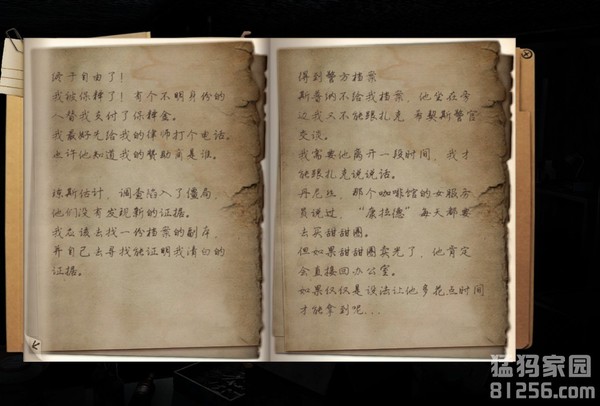 终于自由了！
我被保释了！有个不明身份的
人替我支付了保释金。
我最好先给我的律师打个电话。
也许他知道我的赞助商是谁。
琼斯估计，调查陷入了僵局，
他们没有发现新的证据。
我应该去找一份档案的副本，
并自己去寻找能证明我清白的
证据。
得到警方档案
斯普纳不给我档案，他坐在旁
边我又不能跟扎克 布契斯警官
交谈。
我需要他离开一段时间，我才
能跟扎克说说话。
丹尼丝，那个咖啡馆的女服务
员说过，“康拉德”每天都要
去买甜甜圈。
但如果甜甜圈卖光了，他肯定
会直接回办公室。
如果仅仅是设法让他多花点时间
才能拿到呢...
猛犸家园
81256.com